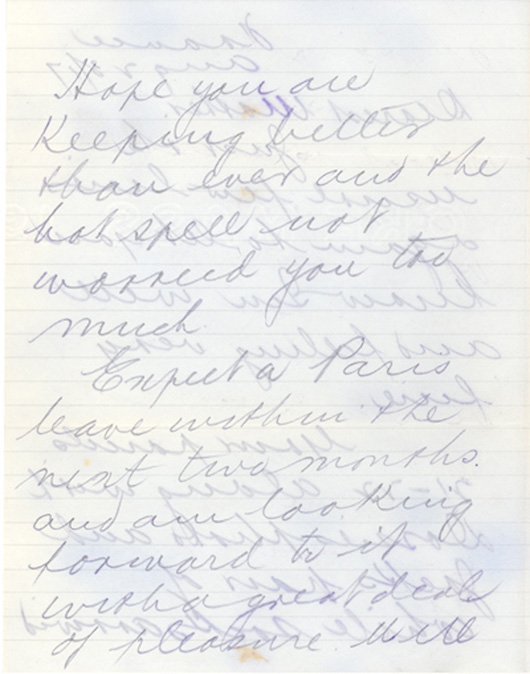 Hope you are
Keeping better
than ever and the
hot spell not
worried you too
much.
Expect a Paris
leave within the
next two months.
and am looking
forward to it
with a great deal
of pleasure. Will